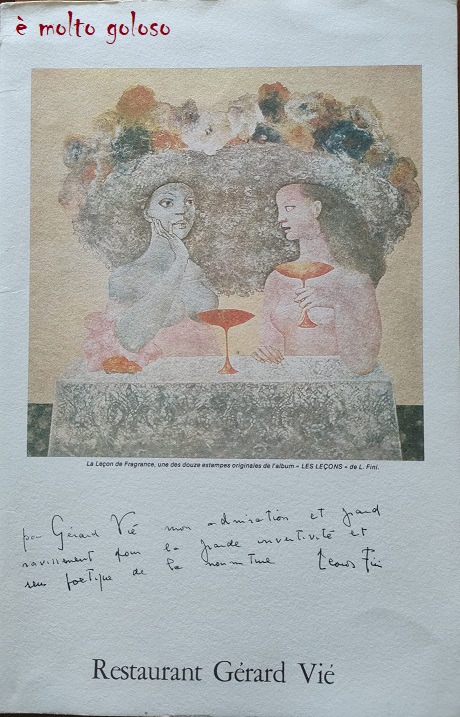 è molto goloso
La Leçon de Fragrance, une des douze estampes originales de l'album « LES LEÇONS » de L. Fini.
pour Gérard Vié mon admiration et grand
ravissement pour la grande inventivité et
sens poétique de la nourriture Leonor Fini
Restaurant Gérard Vié